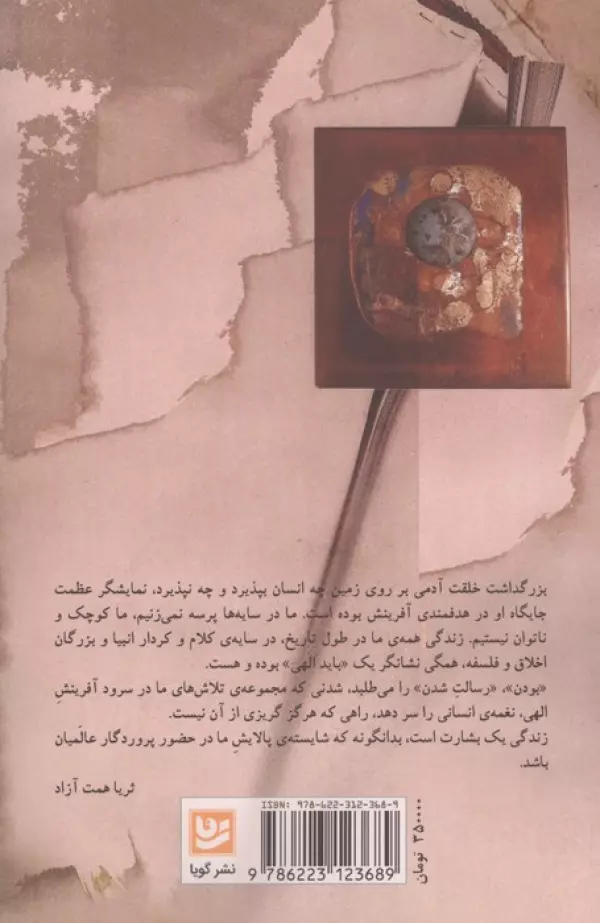 بزرگداشت خلقت آدمی بر روی زمین چه انسان بپذیرد و چه نپذیرد، نمایشگر عظمت
جایگاه او در هدفمندی آفرینش بوده است. ما در سایه‌ها پرسه نمی‌زنیم، ما کوچک و
ناتوان نیستیم. زندگی همه‌ی ما در طول تاریخ، در سایه‌ی کلام و کردار انبیا و بزرگان
اخلاق و فلسفه، همگی نشانگر یک «باید الهی» بوده و هست.
«بودن»، «رسالتِ شدن» را می‌طلبد، شدنی که مجموعه‌ی تلاش‌های ما در سرود آفرینشِ
الهی، نغمه‌ی انسانی را سر دهد، راهی که هرگز گریزی از آن نیست.
زندگی یک بشارت است، بدانگونه که شایسته‌ی پالایشِ ما در حضور پروردگار عالَمیان
باشد.
ثریا همت آزاد
ISBN: 978-622-312-368-9
9 786223 123689
نشر گویا
۳۵۰۰۰۰ تومان